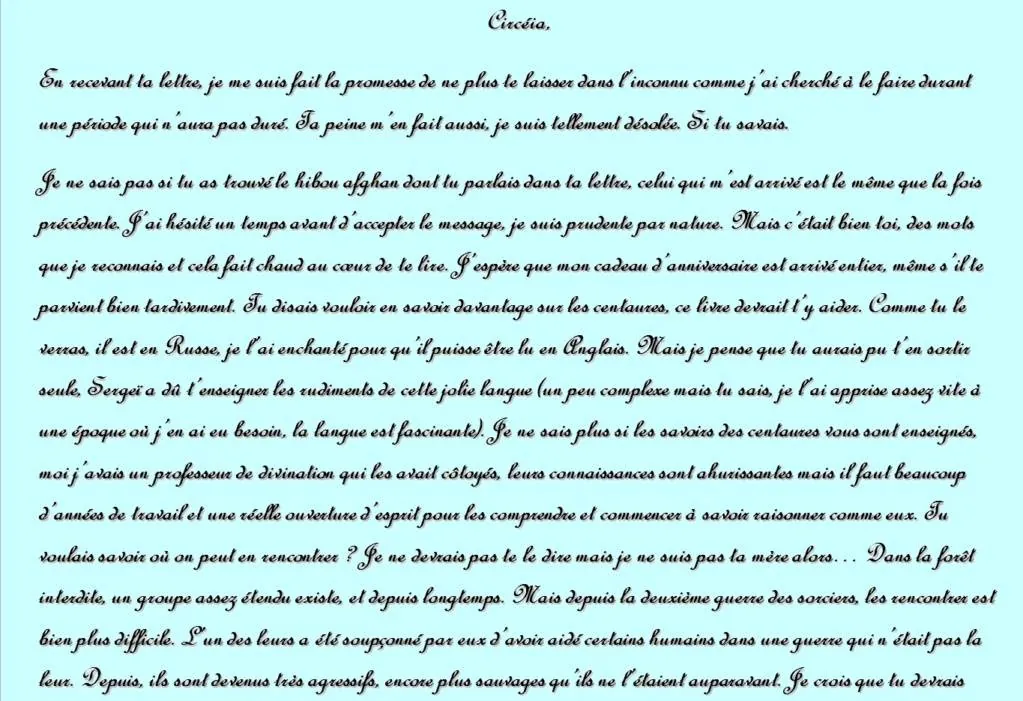 Circéia,
En recevant ta lettre, je me suis fait la promesse de ne plus te laisser dans l'inconnu comme j'ai cherché à le faire durant
une période qui n'aura pas duré. Ta peine m'en fait aussi, je suis tellement désolée. Si tu savais.
Je ne sais pas si tu as trouvé le hibou afghan dont tu parlais dans ta lettre, celui qui m'est arrivé est le même que la fois
précédente. J'ai hésité un temps avant d'accepter le message, je suis prudente par nature. Mais c'était bien toi, des mots
que je reconnais et cela fait chaud au cœur de te lire. J'espère que mon cadeau d'anniversaire est arrivé entier, même s'il te
parvient bien tardivement. Tu disais vouloir en savoir davantage sur les centaures, ce livre devrait t'y aider. Comme tu le
verras, il est en Russe, je l'ai enchanté pour qu'il puisse être lu en Anglais. Mais je pense que tu aurais pu t'en sortir
seule, Sergeï a dû t'enseigner les rudiments de cette jolie langue (un peu complexe mais tu sais, je l'ai apprise assez vite à
une époque où j'en ai eu besoin, la langue est fascinante). Je ne sais plus si les savoirs des centaures vous sont enseignés,
moi j'avais un professeur de divination qui les avait côtoyés, leurs connaissances sont ahurissantes mais il faut beaucoup
d'années de travail et une réelle ouverture d'esprit pour les comprendre et commencer à savoir raisonner comme eux. Tu
voulais savoir où on peut en rencontrer ? Je ne devrais pas te le dire mais je ne suis pas ta mère alors… Dans la forêt
interdite, un groupe assez étendu existe, et depuis longtemps. Mais depuis la deuxième guerre des sorciers, les rencontrer est
bien plus difficile. L'un des leurs a été soupçonné par eux d'avoir aidé certains humains dans une guerre qui n'était pas la
leur. Depuis, ils sont devenus très agressifs, encore plus sauvages qu'ils ne l'étaient auparavant. Je crois que tu devrais